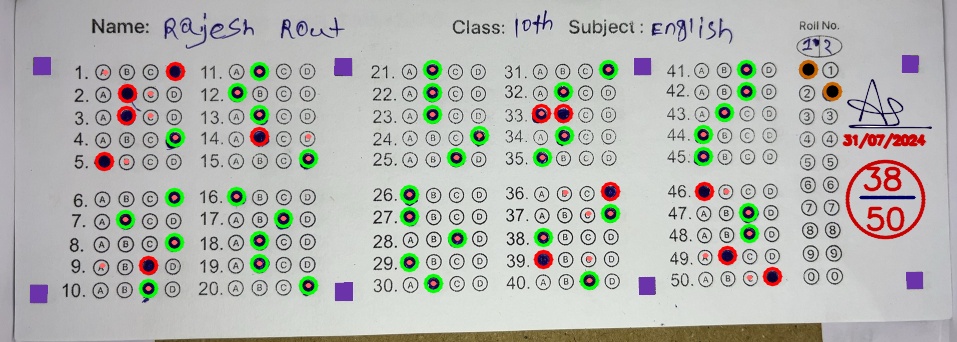 Name: Rajesh Rout Class: 10th Subject: English
Roll No.
12
1. A B C
2. A C D
3. A C D
4. A B C
5. B C D
6. A B C
7. A C D
8. A B C
9. A B D
10. A B D
11. A C D
12. B C D
13. A C D
14. A C D
15. A B C
16. B C D
17. A B D
18. A C D
19. A C D
20. A B C
21. A C D
22. A C D
23. A C D
24. A B C
25. A B D
26. B C D
27. B C D
28. A B D
29. B C D
30. A C D
31. A B C
32. A C D
33. C D
34. A C D
35. B C D
36. A B C
37. A B C
38. B C D
39. B C D
40. A B D
41. A B D
42. A B D
43. A C D
44. B C D
45. B C D
46. B C D
47. A B D
48. A B D
49. A C D
50. A B C
1
2
3 3
4 4
5 5
6 6
7 7
8 8
9 9
0 0
31/07/2024
38
50